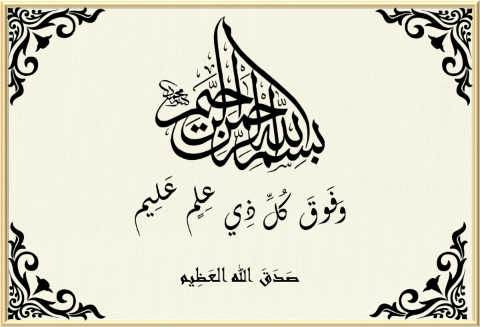 بسم الله الرحمن الرحيم
وَفَوقَ كُلِّ ذِي عِلمٍ عَلِيم
صَدَقَ الله العَظِيم